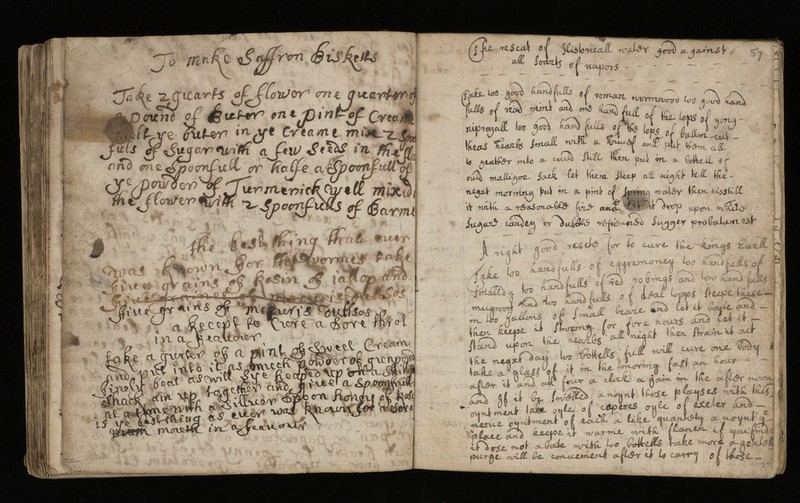 To make Saffron Bisketts
Take 2 quarts of flower one quarter of
a Pound of Buter one Pint of Cream
melt ye buter in ye Creame mix 2 Spo
fuls of Sugar with a few Seeds in the
and one Spoonfull or halfe a Spoonfull of
ye powder of Turmerick well mixed
the flower with 2 Spoonfulls of Barme
the best thing that ever
was known for the wormes take
five grains of Rosin of Jallop and
five grains of
a Recept to Cure a Sore throt
in a feaver
take a quter of a pint of Sweet Cream
and put into it as much powder of
finely beat as will Lye heaped up on a Shilling
Shack am up together and give a Spoonfull
at a time with a Sillver Spoon honey of Rosi
is ye best thing as ever was known for a Sore
mouth in a feavour
57
The reseat of Historicall water good a gainst
all Sourts of vapors
Take too good handfulls of roman wormwood too good hand
fulls of red mint and one hand full of the tops of yong
too good hand fulls of the tops of ballm cut
theas hearbs small with a knief and put them all
to geather into a could Still then put in a bottell of
ould malligoe Sack let them Steep all night tell the
nexet morning put in a pint of Spring water then disstill
it with a reasonable fire and let it drop upon white
Sugar candey or dubble refienned Sugger probatum est
A right good reseat for to cure the kings Evell
Take too handfulls of eggremoney too handfulls of
Smalledg too handfulls of red robings and too hand fulls
mugwort and too hand fulls of deal topps Steepe these
in too gallons of Small beare and let it boyle and
then keepe it Stueing for fore hours and let it
Stand upon the hearbs all night then Strain it out
the nexet day too bottells full will cure one body
take a glass of it in the morning fast an hour
after it and att four a clock a gain in the after noon
and If it be Swelled anoynt those playses with this
oyntment take oyle of capeers oyle of exeter and
nerve oyntment of each a like quantety anoynt ye
place and keepe it warme with flanen if you find
it dose not abate with too bottells take more a gentell
purge will be convenient after it to carry of those